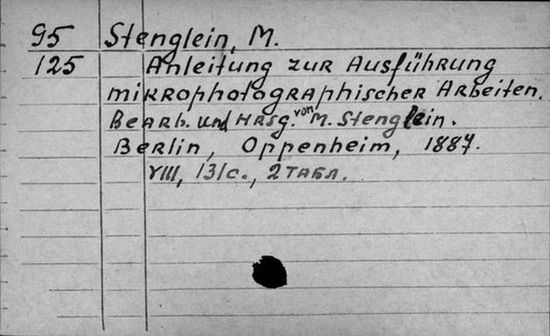 95 Stenglein, M.
125 Anleitung zur Ausführung
mikrophotographischer Arbeiten.
Bearb. und hrsg. von M. Stenglein.
Berlin, Oppenheim, 1887.
VIII, 131с., 2 табл.